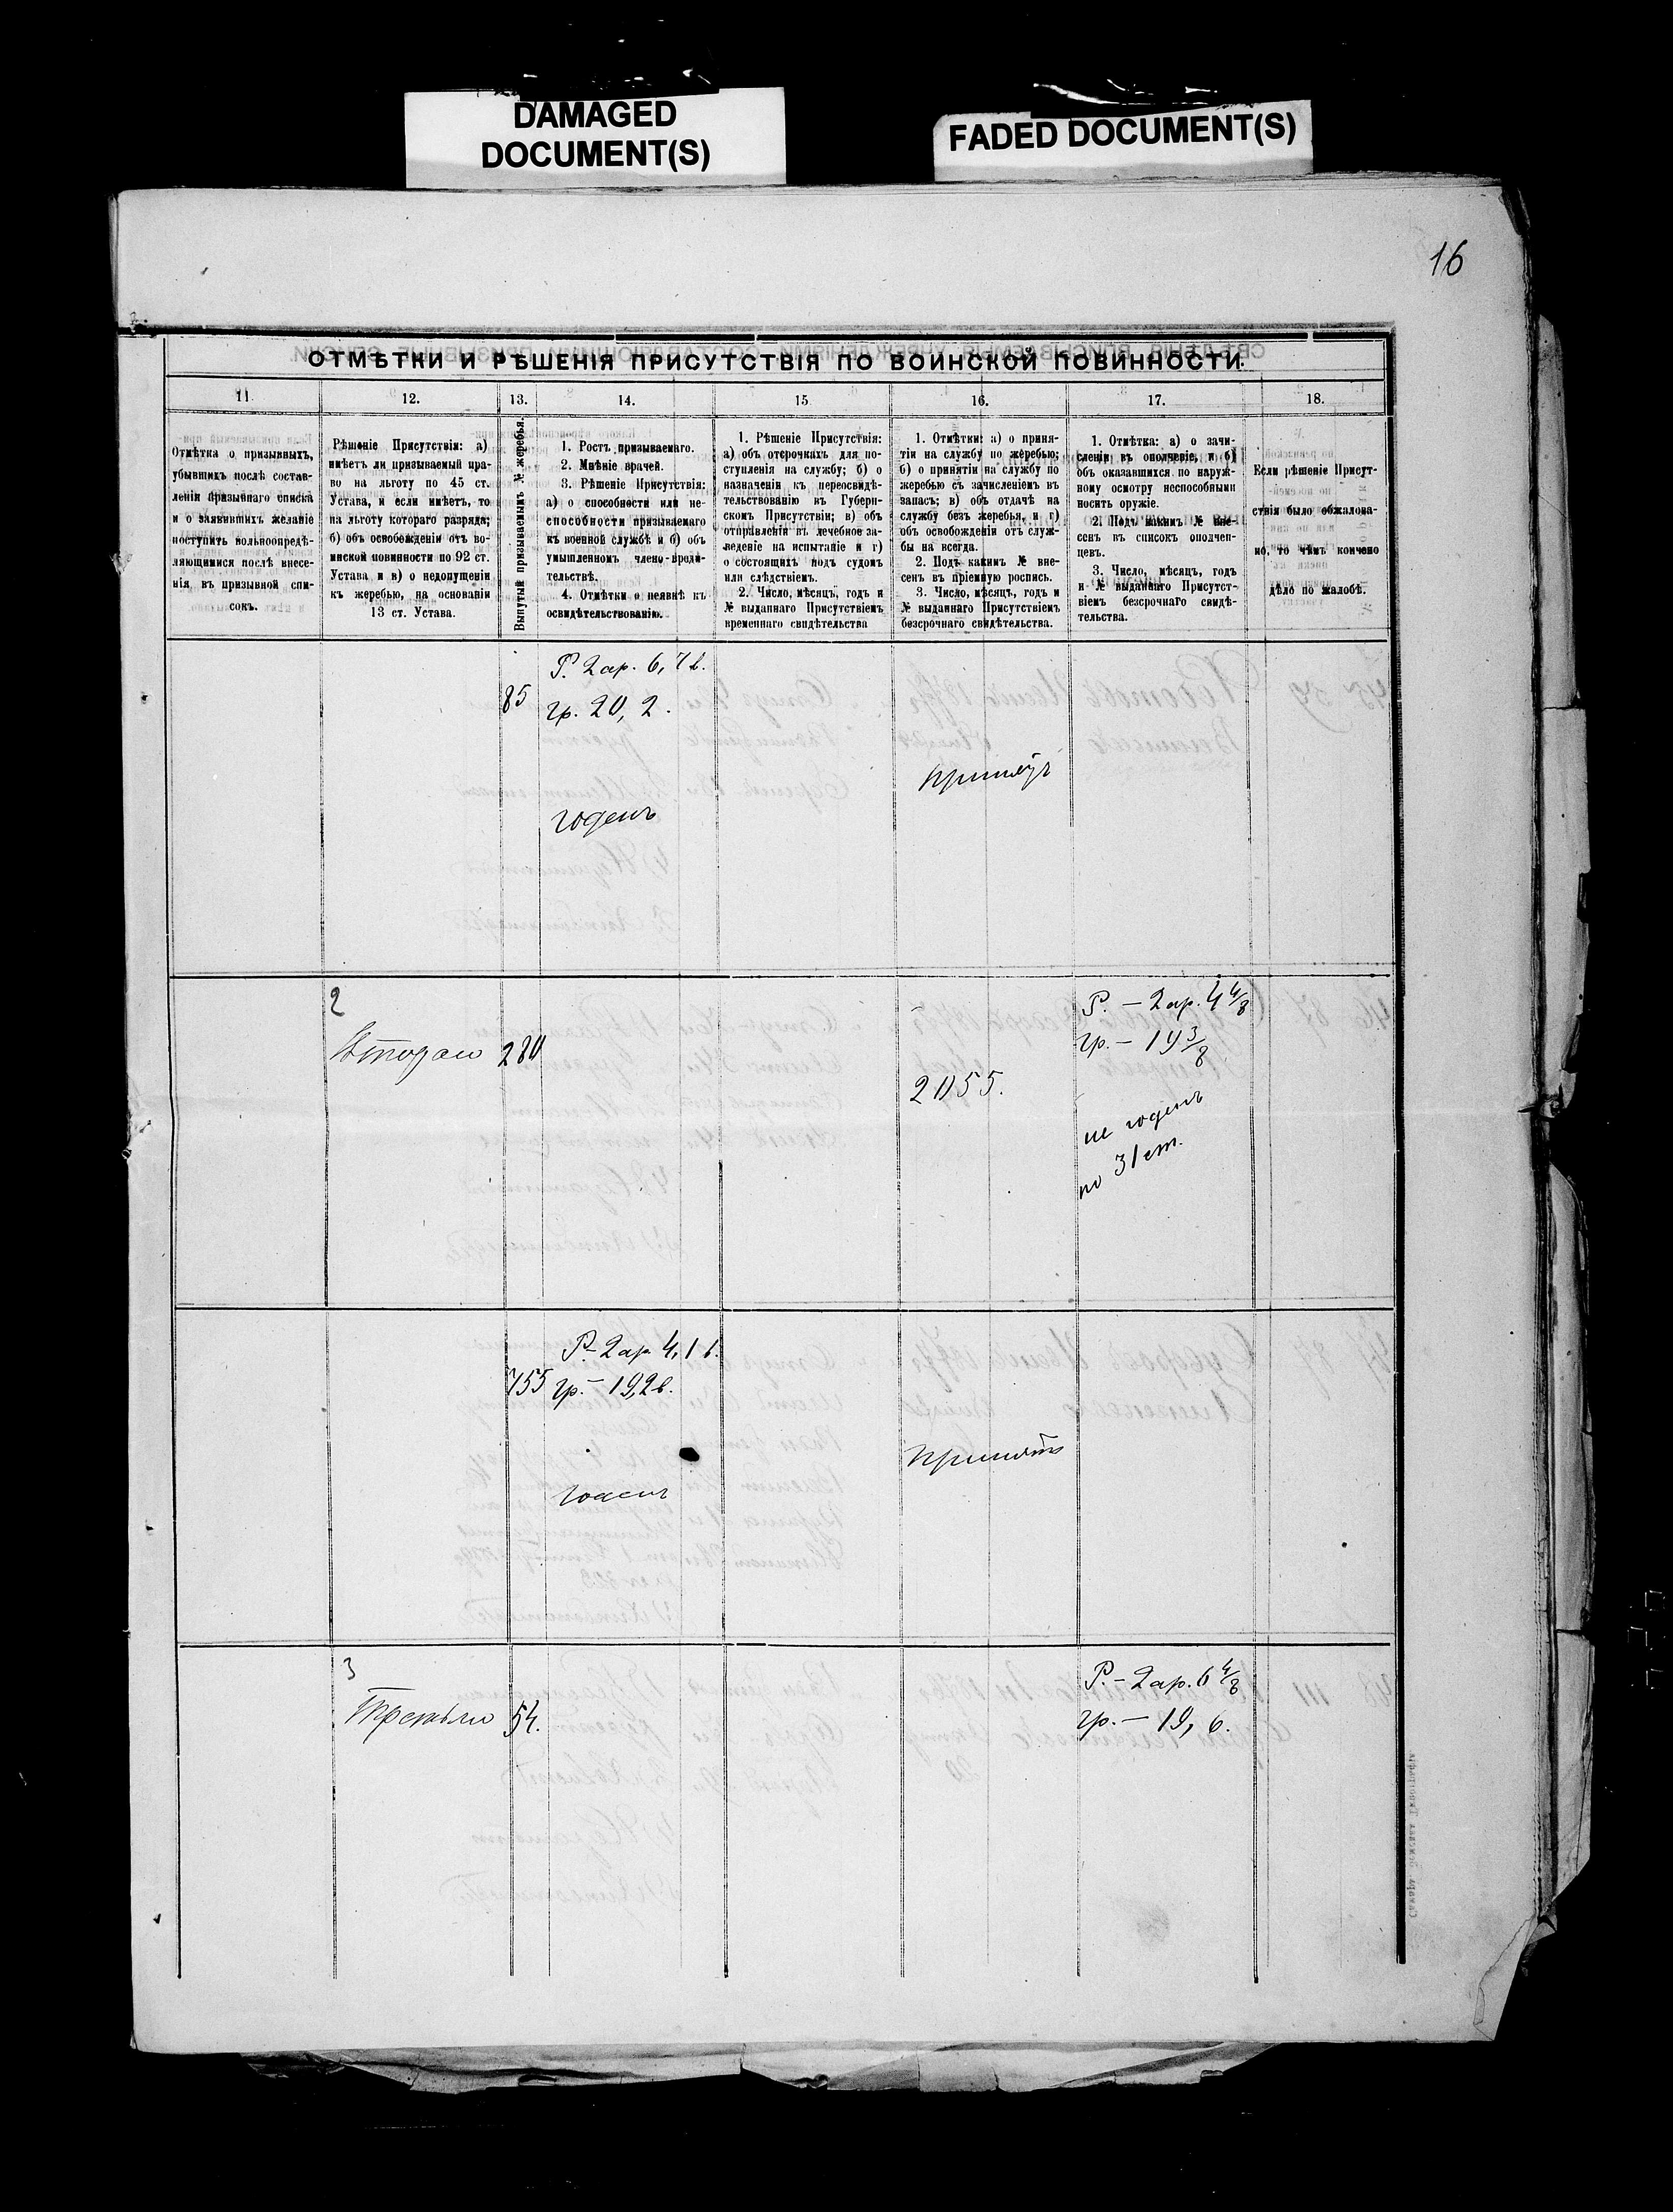 DAMAGED
DOCUMENT(S)
FADED DOCUMENT(S)
16
ОТМѢТКИ И РѢШЕНІЯ ПРИСУТСТВІЯ ПО ВОИНСКОЙ ПОВИННОСТИ.
11.
12.
13.
14.
15
16.
17.
18.
Отмѣтка о призывныхъ,
убывшихъ послѣ состав-
ленія призывнаго списка
и о заявившихъ желаніе
поступить вольноопредѣ-
ляющимися послѣ внесе-
нія въ призывной спи-
сокъ.
Рѣшеніе Присутствія: а)
имѣетъ ли призываемый пра-
во на льготу по 45 ст.
Устава, и если имѣетъ, то
на льготу котораго разряда;
б) объ освобожденіи отъ во-
инской повинности по 92 ст.
Устава и в) о недопущеніи
къ жеребью, на основаніи
13 ст. Устава.
Вынутый призываемымъ № жеребья.
1. Ростъ призываемаго.
2. Мнѣніе врачей.
3. Рѣшеніе Присутствія:
а) о способности или не-
способности призываемаго
къ военной службѣ и б) объ
умышленномъ члено-вреди-
тельствѣ.
4. Отмѣтки о неявкѣ къ
освидѣтельствованію.
1. Рѣшеніе Присутствія:
а) объ отсрочкахъ для по-
ступленія на службу; б) о
назначеніи къ переосвидѣ-
тельствованію въ Губерн-
скомъ Присутствіи; в) объ
отправленіи въ лечебное за-
веденіе на испытаніе и г)
о состоящихъ подъ судомъ
или слѣдствіемъ.
2. Число, мѣсяцъ, годъ и
№ выданнаго Присутствіемъ
временнаго свидѣтельства
1. Отмѣтки: а) о приня-
тіи на службу по жеребью;
б) о принятіи на службу по
жеребью съ зачисленіемъ въ
запасъ; в) объ отдачѣ на
службу безъ жеребья, и г)
объ освобожденіи отъ служ-
бы на всегда.
2. Подъ какимъ № вне-
сенъ въ пріемную роспись.
3. Число, мѣсяцъ, годъ и
№ выданнаго Присутствіемъ
безсрочнаго свидѣтельства.
1. Отмѣтка: а) о зачи-
сленіи въ ополченіе, и б)
объ оказавшихся по наруж-
ному осмотру неспособными
носить оружіе.
2. Подъ какимъ № вне-
сенъ въ списокъ ополчен-
цевъ.
3. Число, мѣсяцъ, годъ
и № выданнаго Присутст-
віемъ безсрочнаго свидѣ-
тельства.
Если рѣшеніе Присут-
ствія было обжалова-
но, то чѣмъ кончено
дѣло по жалобѣ.
85
Р. 2 ар. 6, 7 в.
гр. 20, 2.
годенъ
принятъ
2
Вторая
280
2055.
Р. – 2 ар. 4 4/8
гр. – 19 3/8
не годенъ
по 31 ст.
755
Р – 2 ар 4, 1 в.
гр. – 19,2 в.
годенъ
принятъ
3
54.
Р. – 2 ар. 6 4/8
гр. – 19, 6.